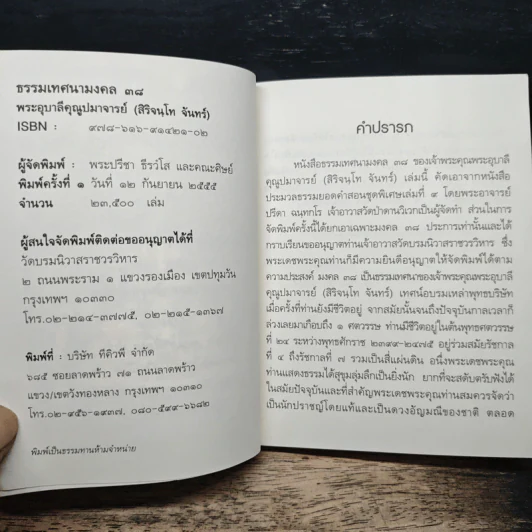 ธรรมเทศนามงคล ๓๘
พระอุบาลีคุณูปมาจารย์ (สิริจนฺโท จันทร์)
ISBN : ๙๗๘-๖๑๖-๙๑๔๒๑-๐๒
ผู้จัดพิมพ์ : พระปรีชา ธีรวํโส และคณะศิษย์
พิมพ์ครั้งที่ ๑ วันที่ ๑๒ กันยายน ๒๕๕๕
จำนวน ๒๓,๕๐๐ เล่ม
ผู้สนใจจัดพิมพ์ติดต่อขออนุญาตได้ที่
วัดบรมนิวาสราชวรวิหาร
๒ ถนนพระราม ๑ แขวงรองเมือง เขตปทุมวัน
กรุงเทพฯ ๑๐๓๓๐
โทร.๐๒-๒๑๔-๓๗๗๕, ๐๒-๒๑๕-๑๓๖๗
พิมพ์ที่ : บริษัท ทีคิวพี จำกัด
๖๘๕ ซอยลาดพร้าว ๗๑ ถนนลาดพร้าว
แขวง/เขตวังทองหลาง กรุงเทพฯ ๑๐๓๑๐
โทร.๐๒-๙๕๖-๑๙๓๗, ๐๘๐-๕๙๙-๖๖๘๒
พิมพ์เป็นธรรมทานห้ามจำหน่าย
คำปรารภ
หนังสือธรรมเทศนามงคล ๓๘ ของเจ้าพระคุณพระอุบาลี
คุณูปมาจารย์ (สิริจนฺโท จันทร์) เล่มนี้ คัดเอาจากหนังสือ
ประมวลธรรมยอดคำสอนชุดพิเศษเล่มที่ ๙ โดยพระอาจารย์
ปรีดา ฉนฺทกโร เจ้าอาวาสวัดป่าดานวิเวกเป็นผู้จัดทำ ส่วนในการ
จัดพิมพ์ครั้งนี้ได้ยกเอาเฉพาะมงคล ๓๘ ประการเท่านั้นและได้
กราบเรียนขออนุญาตท่านเจ้าอาวาสวัดบรมนิวาสราชวรวิหาร ซึ่ง
พระเดชพระคุณท่านก็มีความยินดีอนุญาตให้จัดพิมพ์ได้ตาม
ความประสงค์ มงคล ๓๘ เป็นธรรมเทศนาของเจ้าพระคุณพระอุบาลี
คุณูปมาจารย์ (สิริจนฺโท จันทร์) เทศน์อบรมเหล่าพุทธบริษัท
เมื่อครั้งที่ท่านยังมีชีวิตอยู่ จากสมัยนั้นจนถึงปัจจุบันกาลเวลาก็
ล่วงเลยมาเกือบถึง ๑ ศตวรรษ ท่านมีชีวิตอยู่ในต้นพุทธศตวรรษ
ที่ ๒๔ ระหว่างพุทธศักราช ๒๓๙๙-๒๔๗๕ อยู่ร่วมสมัยรัชกาล
ที่ ๔ ถึงรัชกาลที่ ๗ รวมเป็นสี่แผ่นดิน อนึ่งพระเดชพระคุณ
ท่านแสดงธรรมได้สุขุมลุ่มลึกเป็นยิ่งนัก ยากที่จะสดับตรับฟังได้
ในสมัยปัจจุบันและที่สำคัญพระเดชพระคุณท่านสมควรจัดว่า
เป็นนักปราชญ์โดยแท้และเป็นดวงอัญมณีของชาติ ตลอด